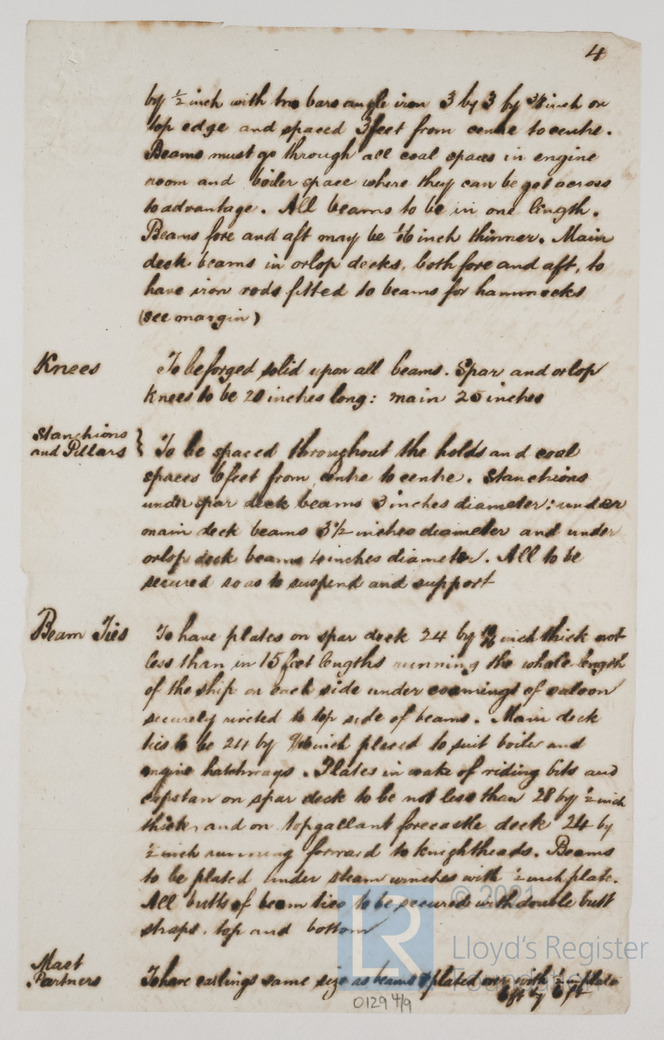 4
by ½ inch with two bars angle iron 3 by 3 by ⅜ inch on
top edge and spaced 3 feet from centre to centre.
Beams must go through all coal spaces in engine
room and boiler space where they can be got across
to advantage. All beams to be in one length.
Beams fore and aft may be 1/16 inch thinner. Main
deck beams in orlop decks, both fore and aft, to
have iron rods fitted to beams for hammocks
(see margin)
Knees To be forged solid upon all beams. Spar and orlop
knees to be 20 inches long: main 25 inches
Stanchions
and Pillars } To be spaced throughout the holds and coal
spaces 6 feet from centre to centre. Stanchions
under spar deck beams 3 inches diameter: under
main deck beams 3½ inches diameter and under
orlop deck beams 4 inches diameter. All to be
secured so as to suspend and support
Beam Ties To have plates on spar deck 24 by inch thick not
less than in 15 feet lengths running the whole length
of the ship on each side under coamings of saloon
securely riveted to top side of beams. Main deck
ties to be 24 by 9/16 inch placed to suit boiler and
engine hatchways. Plates in wake of riding bits and
capstan on spar deck to be not less than 28 by ½ inch
thick, and on topgallant forecastle deck 24 by
½ inch running forward to knightheads. Beams
to be plated under steam winches with ½ inch plate.
All butts of beam ties to be secured with double butt
straps, top and bottom
Mast
Partners To have carlings same size as beams & plated over with ½ in plate
6 ft by 6 ft
0129 4/9
© 2021
LR
Lloyd's Register
Foundation